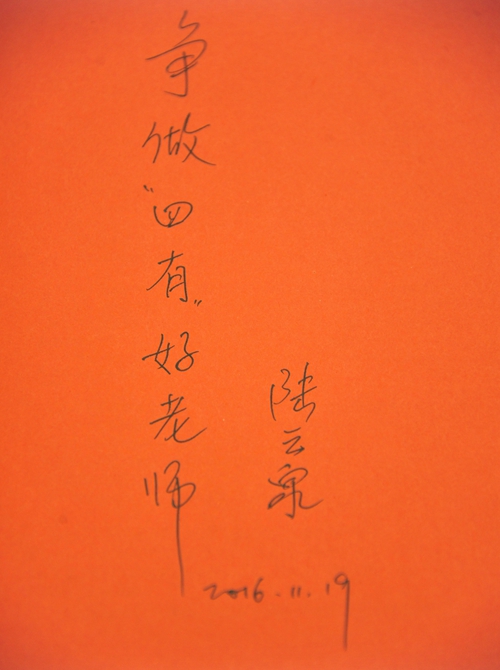 争做“四有”好老师
陆云泉
2016.11.19